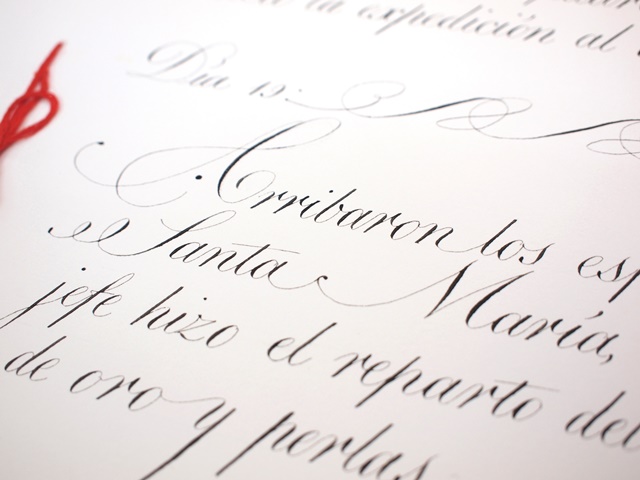 la expedición al
Día 19:
Arribaron los esp
a Santa María,
jefe hizo el reparto del
de oro y perlas